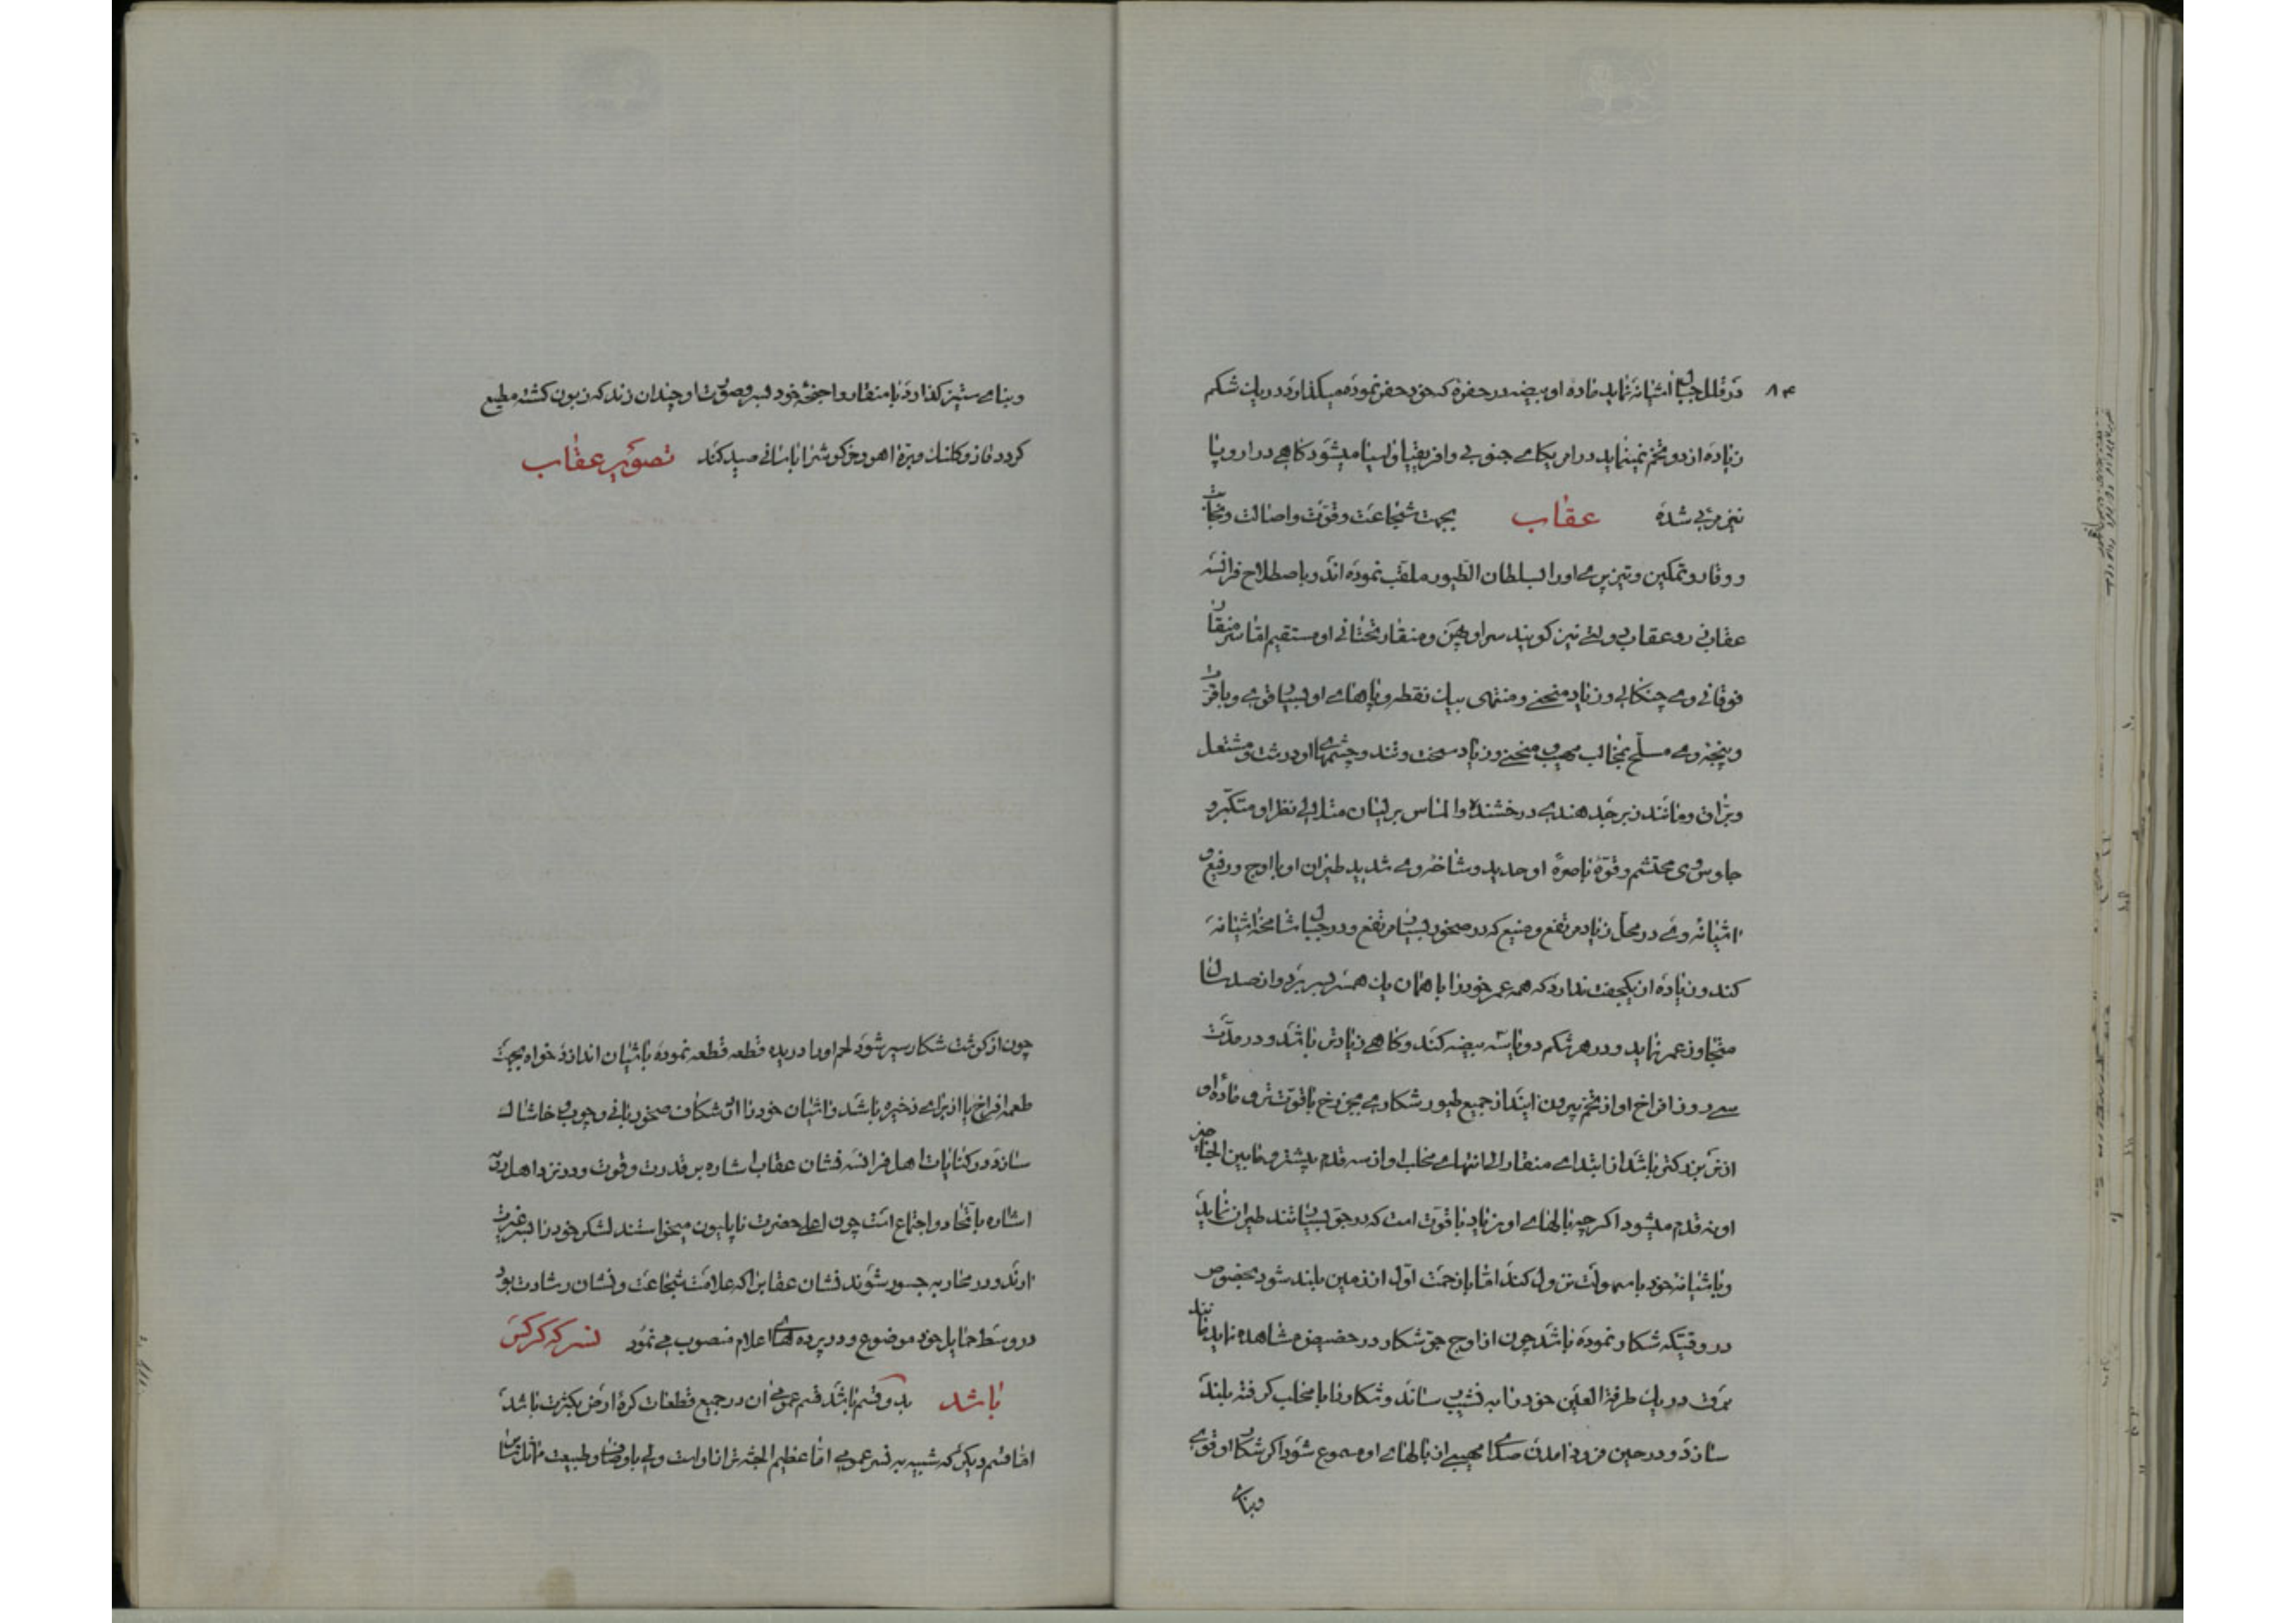 ۸۴
در قلل جبال اشیانه نماید ماده او بیضه در حفرهٔ که خود حفر نموده میگذارد در یک شکم
زیاده از دو تخم نمینماید در امریکای جنوبی و افریقیا و لیبیا میشود کاهی در اروپا
نیز مربی شده عقاب بجهت شجاعت و قوت و اصالت و نجابت
و وقار و تمکین و تیزپری او را سلطان الطیور ملقب نموده اند و باصطلاح فرانسه
عقاب رو عقاب دولتی نیز کویند سر او پهن و منقار تحتانی او مستقیم اما سر منقار
فوقانی وی چنکالی و زیاد منحنی و منتهی بیک نقطه و پاهای او بسیار قوی و با قر
و پنجه وی مسلح بمخالب مهیب و منحنی و زیاد سخت و تند و چشمهای او درشت و مشتعل
و براق و مانند زبرجد هندی درخشنده و الماس برلیان متلالی نظر او متکبر و
جلوس وی محتشم و قوهٔ باصرهٔ او حدید و شاخهٔ وی شدید طیران او با اوج و رفیع و
اشیانه وی در محل زیاد مرتفع و منیع که در صخور بسیار مرتفع و در جبال شامخه اشیانه
کند و زیاده از یکجفت ندارد که همه عمر خود را با همان یک همسر بسر برد و از صد سال
متجاوز عمر نماید و در هر شکم دو یا سه بیضه کند و کاهی زیادتر باشد و در مدت
سی روز افراخ او از تخم بیرون ایند از جمیع طیور شکاری بجز رخ با قوت تر و ماده او
از نر بزرکتر باشد از ابتدای منقار الی انتهای مخلب او از سه قدم بیشتر و مابین الجناحین
او نه قدم میشود اکرچه بالهای او زیاد با قوت است که در جو بسیار تند طیران نماید
و باشیانه خود با سهولت نزول کند اما با زحمت اول از زمین بلند شود بخصوص
در وقتیکه شکار نموده باشد چون از اوج جو شکار در حضیض مشاهده نماید مانند
برق در یک طرفة العین خود را به نشیب رساند و شکار را با مخلب کرفته بلند
سازد و در حین فرود امدن صدای مهیبی از بالهای او مسموع شود اکر شکار او قوی
و بنای
و بنای ستیز کذارد با منقار و اجنحهٔ خود بسر و صورت او چندان زند که زبون کشته مطیع
کردد غاز و کلنک و بره اهو و خرکوش را باسانی صید کند تصویر عقاب
چون از کوشت شکار سیر شود لحم او را دریده قطعه قطعه نموده باشیان اندازد خواه بجهت
طعمه افراخ یا از برای ذخیره باشد و اشیان خود را از شکاف صخور بانی و چوب و خاشاک
سازد و در کنایات اهل فرانسه نشان عقاب اشاره بر قدرت و قوت و در نزد اهل
اشاره باتحاد و اجتماع است چون اعلی حضرت ناپلیون میخواستند لشکر خود را بسر غیرت
ارند و در محاربه جسور شوند نشان عقاب را که علامت شجاعت و نشان رشادت بود
در وسط حمایل خود موضوع و در پرده های اعلام منصوب می نمود نسر که کرکس
باشد بدو قسم باشد قسم عمومی ان در جمیع قطعات کرهٔ ارض بکثرت باشد
اما قسم دیکر که شبیه به نسر عمومی اما عظیم الجثه تر از او است ولی باوصاف و طبیعت